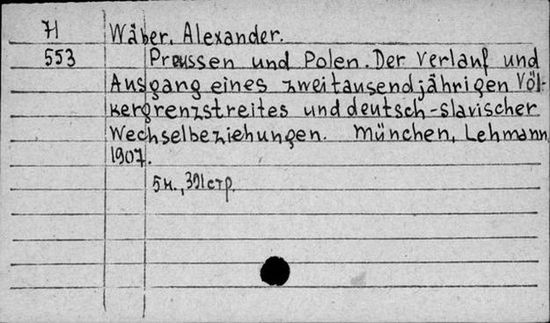 H Wäber, Alexander.
553 Preussen und Polen. Der Verlauf und
Ausgang eines zweitausendjährigen Völ-
kergrenzstreites und deutsch-slavischer
Wechselbeziehungen. München, Lehmann,
1907.
5н., 391стр.